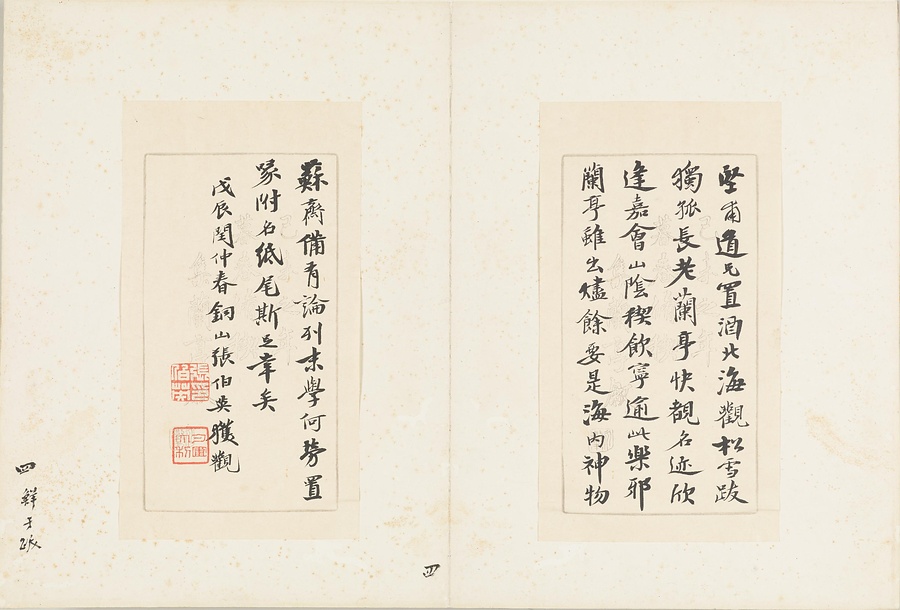 堅甫道兄置酒北海觀松雪跋
獨孤長老蘭亭快覩名迹欣
逢嘉會山陰稧飲寧逾此樂邪
蘭亭雖出燼餘要是海內神物
蘇齋備有論列末學何勞置
喙附名紙尾斯足幸矣
戊辰閏仲春銅山張伯英獲觀
張印
伯英
四
四 鮮于跋